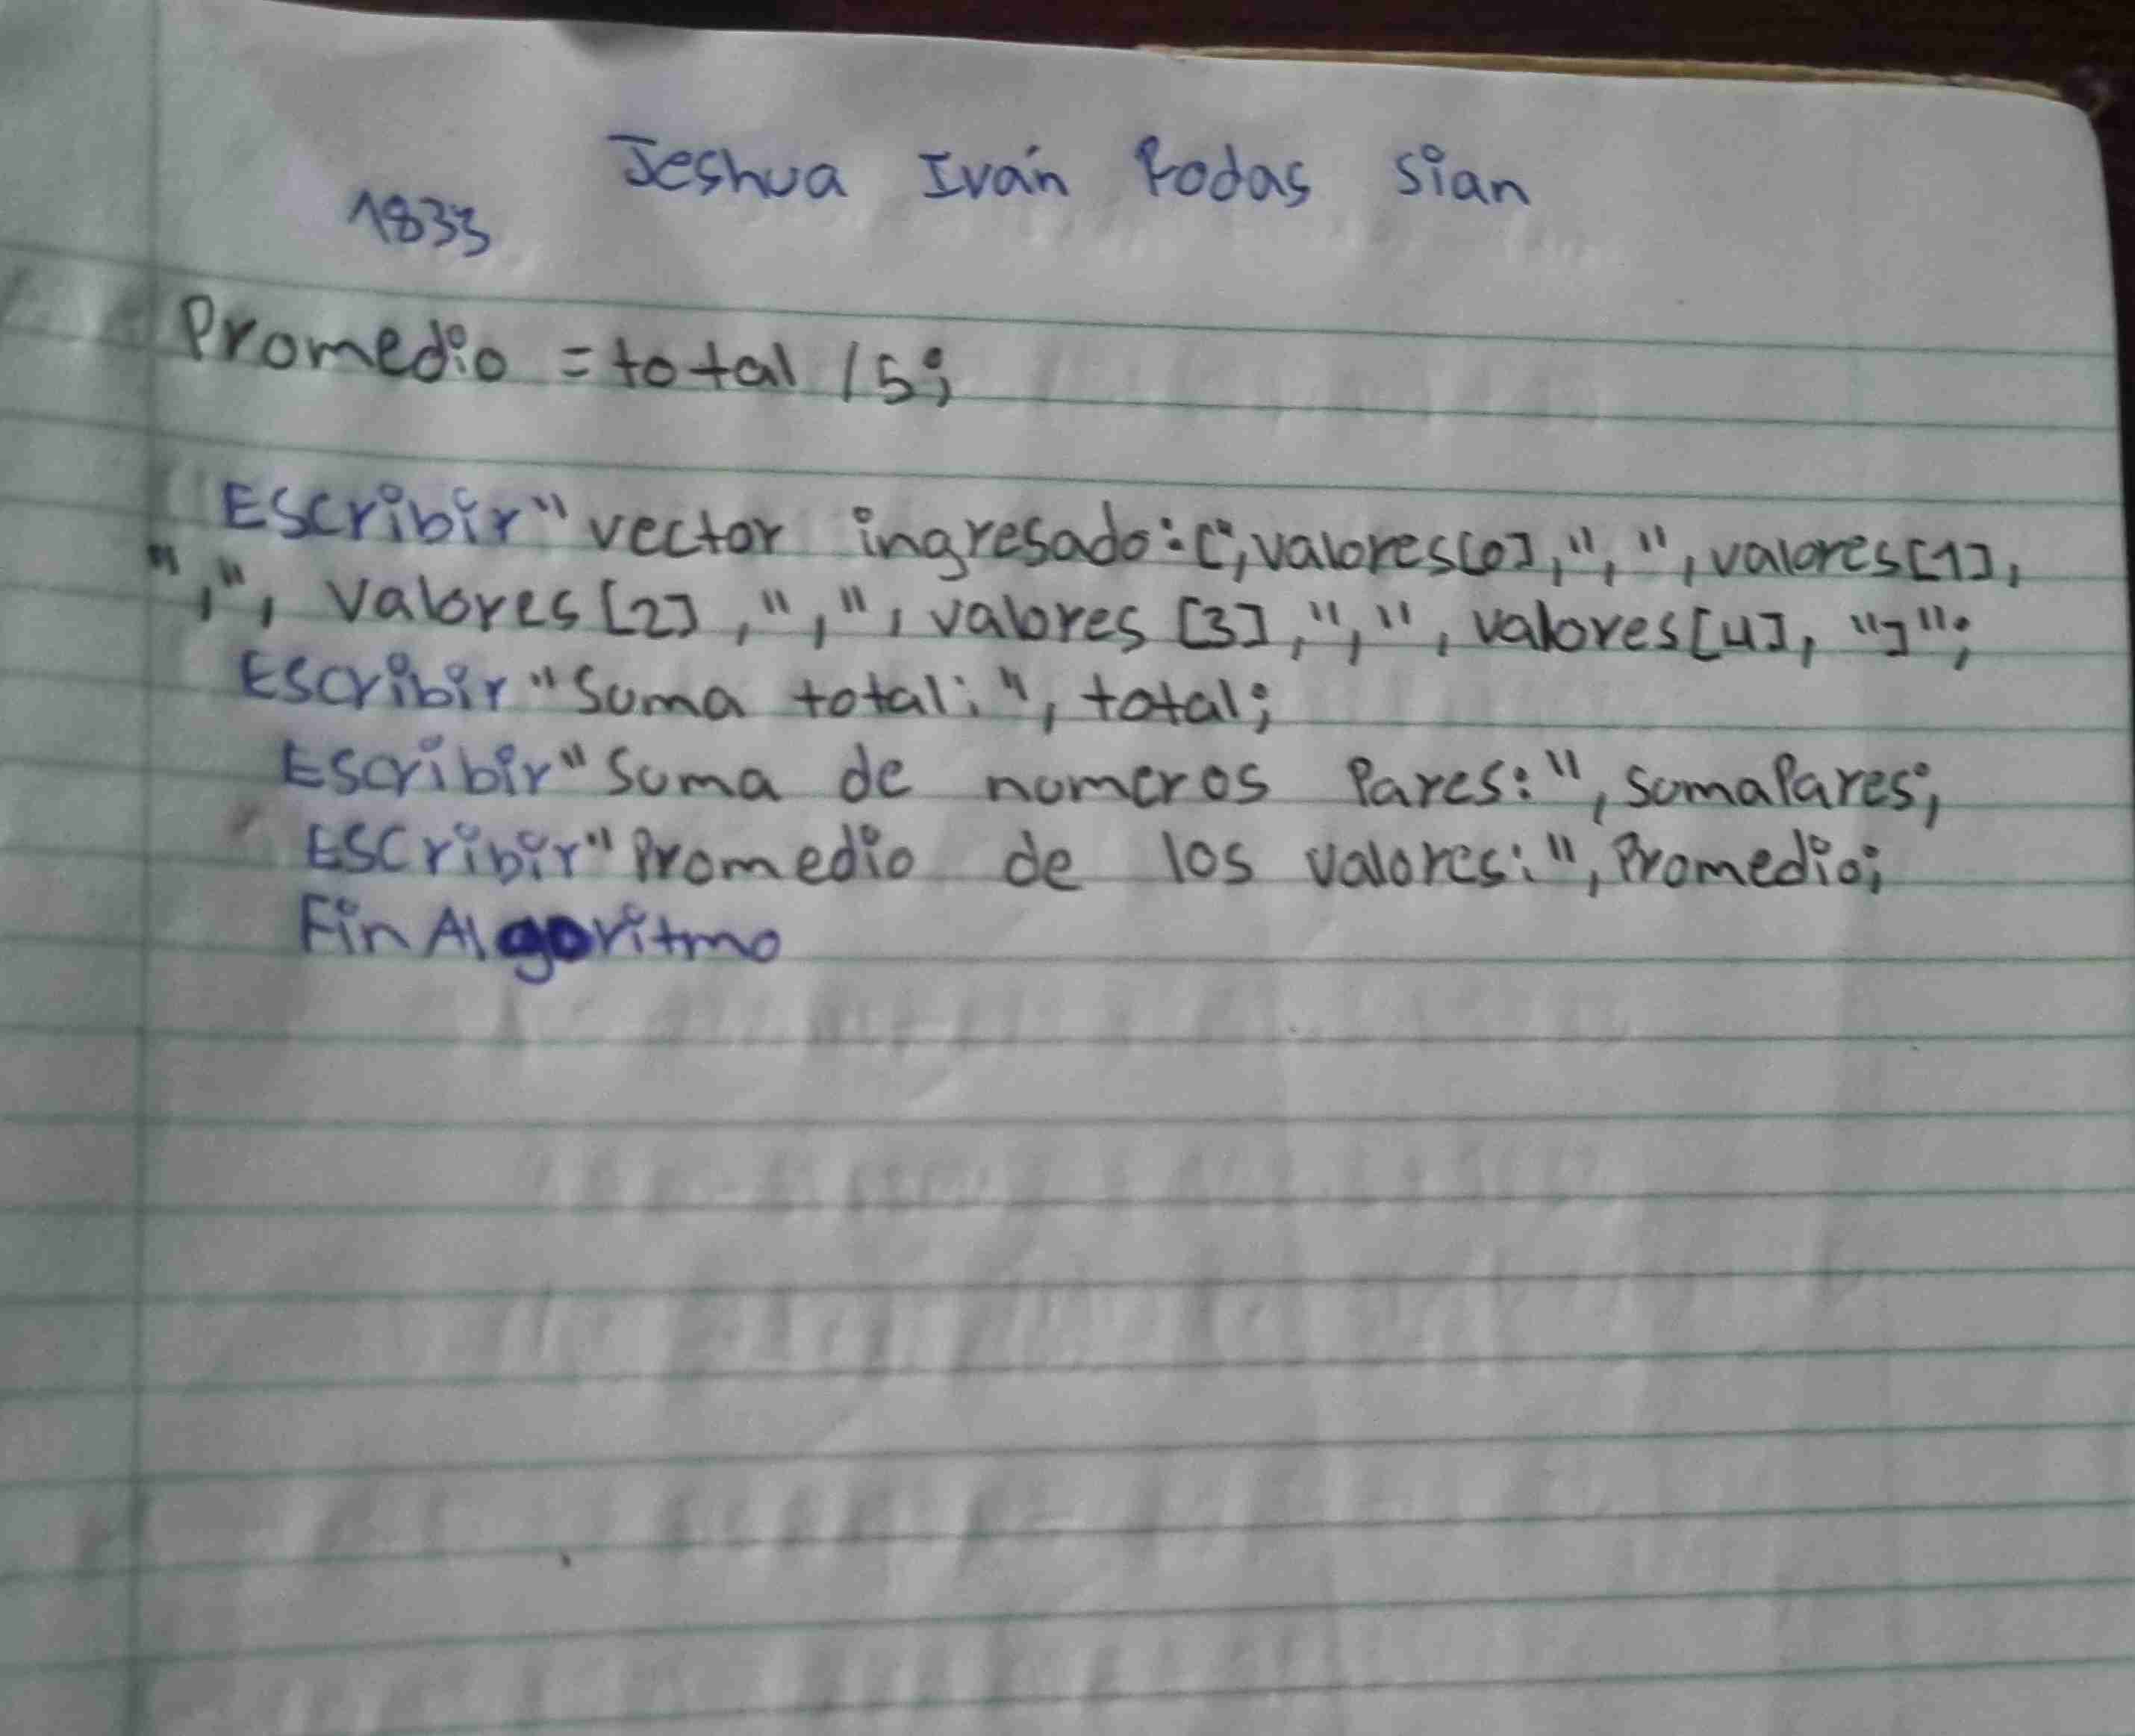 Jeshua Iván Rodas Sian
1833
Promedio = total / 5;
Escribir "vector ingresado:[", valores[0], ",", valores[1],
",", valores [2], ",", valores [3], ",", valores[4], "]";
Escribir "Suma total: ", total;
Escribir "Suma de numeros Pares:", sumaPares;
Escribir "Promedio de los valores:", Promedio;
Fin Algoritmo